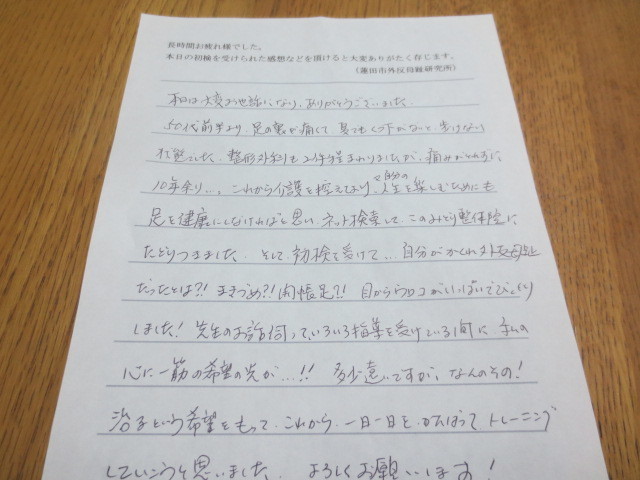 長時間お疲れ様でした。
本日の初検を受けられた感想などを頂けると大変ありがたく存じます。
(蓮田市外反母趾研究所)
本日は大変お世話になり、ありがとうございました。
50代前半より、足の裏が痛くて、とてもくつ下がないと歩けない
状態でした。整形外科も2件程まわりましたが、痛みがとれずに
10年余り…。これから介護を控えており、自分の人生を楽しむためにも
足を健康にしなければと思い、ネット検索して、このみどり整体院に
たどりつきました。そして、初検を受けて… 自分がかくれ外反母趾
だったとは?! まきづめ?! 開帳足?! 目からウロコがいっぱいでびっくり
しました! 先生のお話伺って、いろいろ指導を受けている間に、私の
心に一筋の希望の光が…!! 多少遠いですが、なんのその!
治るという希望をもって、これから、一日一日を、がんばって、トレーニング
していこうと思いました。よろしくお願いします!